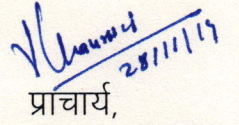 28/11/19
प्राचार्य,